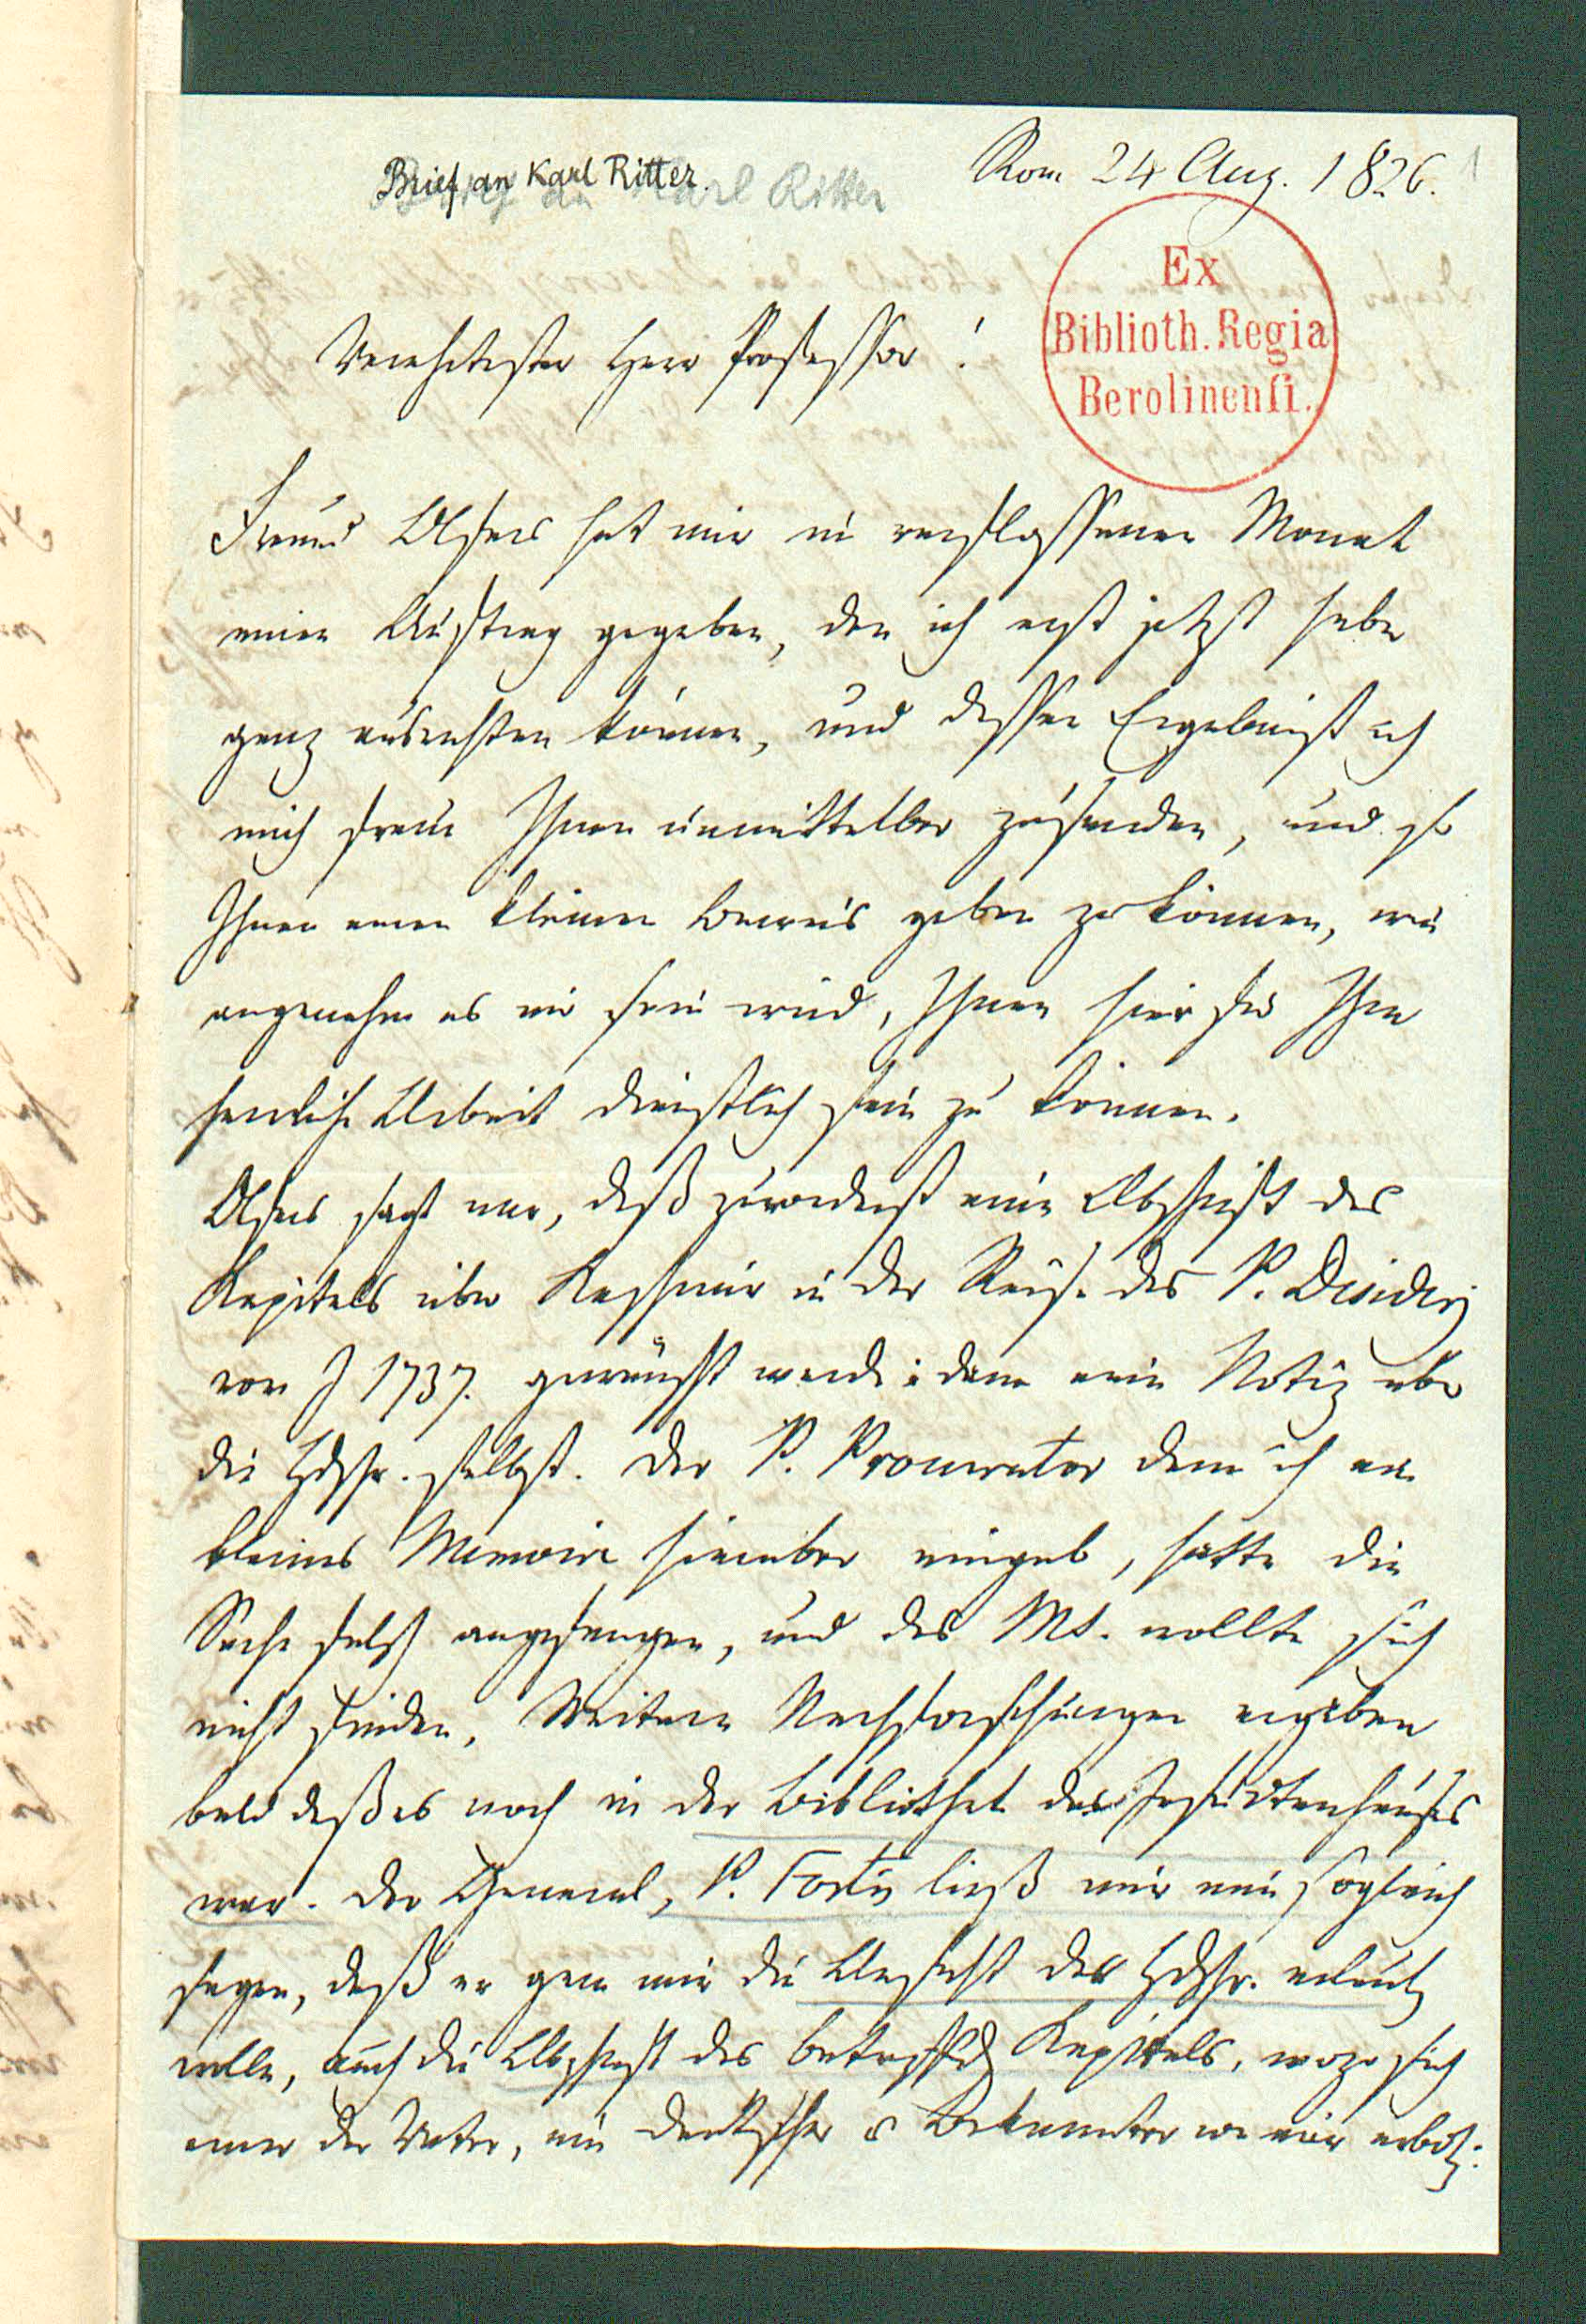 Brief an Karl Ritter.
Brief an Karl Ritter
Rom 24 Aug. 1826.
1
Ex
Biblioth. Regia
Berolinensi.
Verehrtester Herr Professor!
Freund Olfers hat mir in verflossenen Monat
einen Auftrag gegeben, den ich erst jetzt habe
ganz ausrichten können, und dessen Ergebniß ich
mich freue Ihnen unmittelbar zusenden, und so
Ihnen einen kleinen Beweis geben zu können, wie
angenehm es mir sein wird, Ihnen hier für Ihre
herrliche Arbeit dienstlich sein zu können.
Olfers sagt mir, daß zuvorderst eine Abschrift des
Kapitels über Kaschmir in der Reise des P. Desiderj
vom J 1737. gewünscht werde: dann eine Notiz über
die Hdschr. selbst. Der P. Procurator dem ich ein
kleines Memoire hierüber eingab, hatte die
Sache falsch angefangen, und das Ms. wollte sich
nicht finden. Weitere Nachforschungen ergaben
bald daß es noch in der Bibliothek des Jesuitenhauses
war. Der General, P. Fortis ließ mir nun sogleich
sagen, daß er gern mir die Ansicht der Hdschr. erlauben
wolle, auch die Abschrift des betreffd Kapitels, wozu sich
einer der Väter, ein Deutscher u Bekannter von mir erbot.